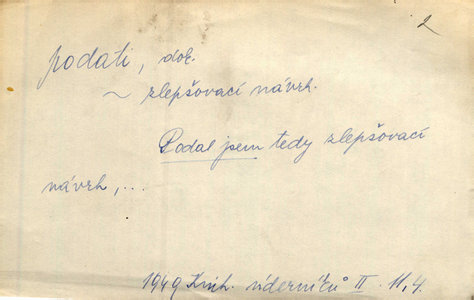 2
podati, dok.
~ zlepšovací návrh.
Podal jsem tedy zlepšovací
návrh,...
1949 Knih. úderníků II. 11,4.